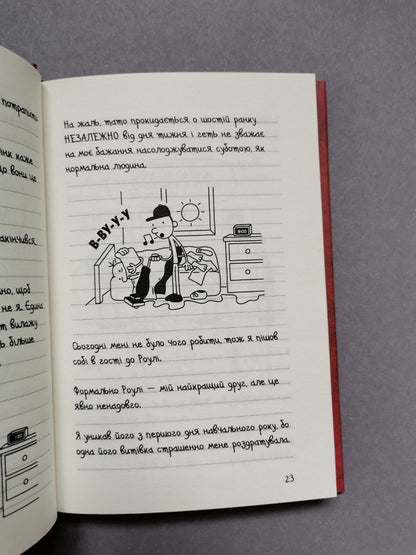 потрапити
інк каже
що вони це
акінчився.
но, щоб
не я. Єдина
т вилажу
ь більше
На жаль, тато прокидається о шостій ранку
НЕЗАЛЕЖНО від дня тижня і геть не зважає
на моє бажання насолоджуватися суботою, як
нормальна людина.
В-ВУ-У-У
8:00
Сьогодні мені не було чого робити, тож я пішов
собі в гості до Роулі.
Формально Роулі — мій найкращий друг, але це
явно ненадовго.
Я уникав його з першого дня навчального року, бо
одна його витівка страшенно мене роздратувала.
23